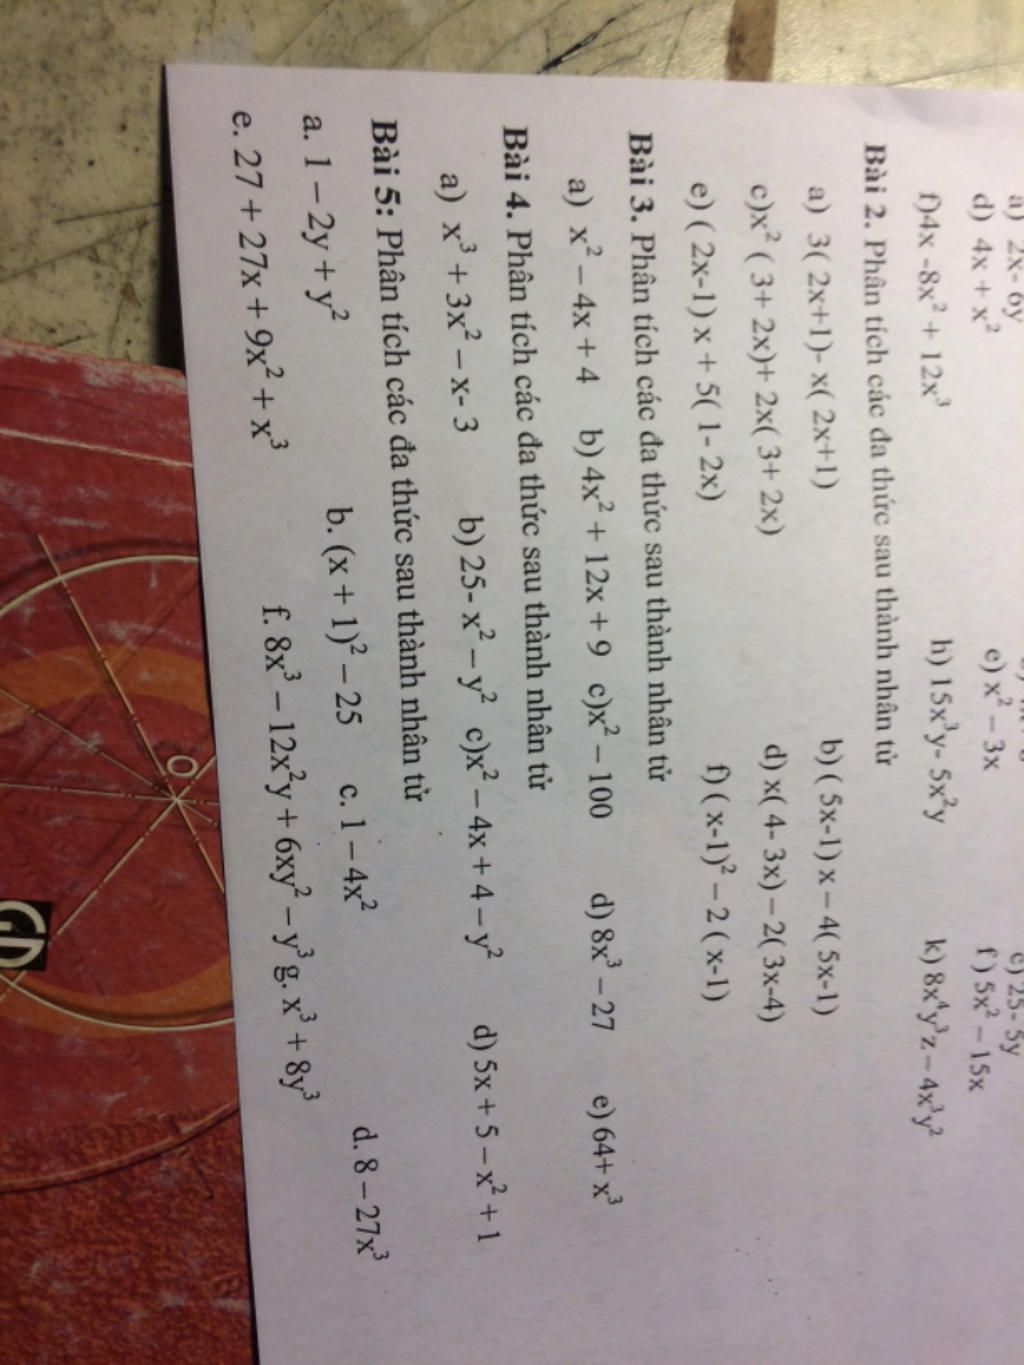 a) 2x- 6y c) 25- 5y
d) 4x + x² e) x² – 3x f) 5x² – 15x
f)4x -8x² + 12x³ h) 15x³y- 5x²y k) 8x⁴y³z – 4x³y²
Bài 2. Phân tích các đa thức sau thành nhân tử
a) 3( 2x+1)- x( 2x+1) b) ( 5x-1) x – 4( 5x-1)
c)x² ( 3+ 2x)+ 2x( 3+ 2x) d) x( 4- 3x) – 2( 3x-4)
e) ( 2x-1) x + 5( 1- 2x) f) ( x-1)² – 2 ( x-1)
Bài 3. Phân tích các đa thức sau thành nhân tử
a) x² – 4x + 4 b) 4x² + 12x + 9 c)x² – 100 d) 8x³ – 27 e) 64+ x³
Bài 4. Phân tích các đa thức sau thành nhân tử
a) x³ + 3x² – x- 3 b) 25- x² – y² c)x² – 4x + 4 – y² d) 5x + 5 – x² + 1
Bài 5: Phân tích các đa thức sau thành nhân tử
a. 1 – 2y + y² b. (x + 1)² – 25 c. 1 – 4x² d. 8 – 27x³
e. 27 + 27x + 9x² + x³ f. 8x³ – 12x²y + 6xy² – y³ g. x³ + 8y³
O